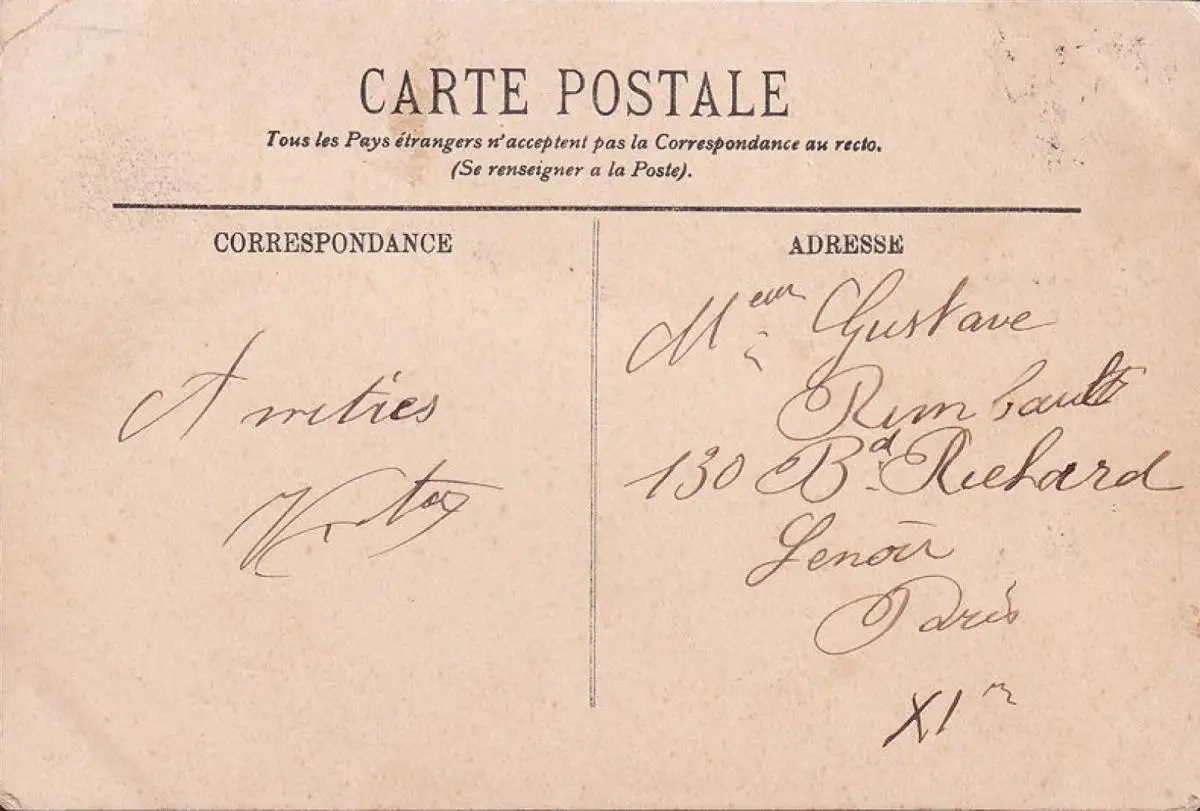 CARTE POSTALE
Tous les Pays étrangers n'acceptent pas la Correspondance au recto.
(Se renseigner a la Poste).
CORRESPONDANCE
Amitiés
ADRESSE
Gustave
Rimbault
130 Bd. Richard
Lenoir
Paris
XIe